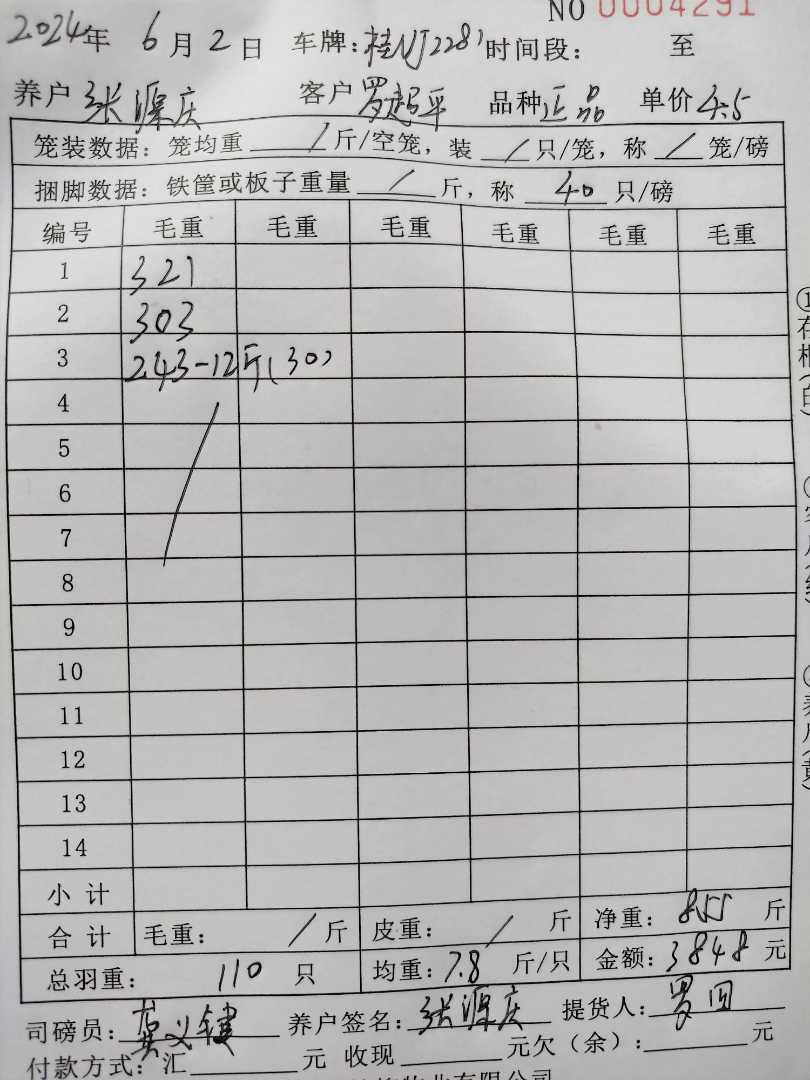 NO 0004291
2024年 6月2日 车牌:桂NJ2281 时间段: 至
养户 张源庆 客户 罗超平 品种 正品 单价 4.5
笼装数据: 笼均重 / 斤/空笼, 装 / 只/笼, 称 / 笼/磅
捆脚数据: 铁筐或板子重量 / 斤, 称 40 只/磅
编号 毛重 毛重 毛重 毛重 毛重 毛重
1 321
2 303
3 243-12斤(30)
4
5
6
7
8
9
10
11
12
13
14
小计
合计 毛重: / 斤 皮重: / 斤 净重: 855 斤
总羽重: 110 只 均重: 7.8 斤/只 金额: 3848 元
司磅员: 龚义键 养户签名: 张源庆 提货人: 罗回
付款方式: 汇 元 收现 元欠(余): 元
物业有限公司
①存根(白)